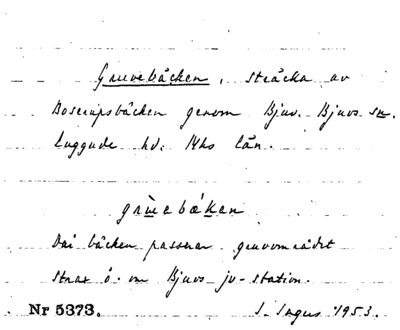 Gruvebäcken, sträcka av
Boserupsbäcken genom Bjuv. Bjuvs sn.
Luggude hd. Mhs län.
grùebǽken
Där bäcken passerar gruvområdet
strax ö. om Bjuvs jv-station.
Nr 5373. S. Ingers 1953.